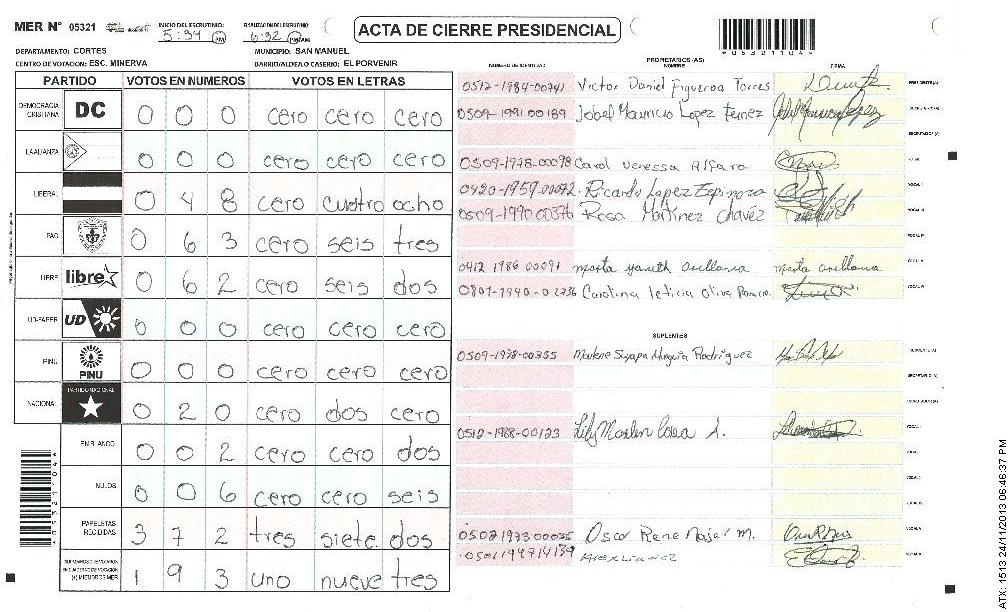 MER Nº 05321
INICIO DEL ESCRUTINIO:
5:34 AM
FINALIZACION DEL ESCRUTINIO:
6:32 PM
ACTA DE CIERRE PRESIDENCIAL
*05321104*
DEPARTAMENTO: CORTES
MUNICIPIO: SAN MANUEL
CENTRO DE VOTACION: ESC. MINERVA
BARRIO/ALDEA O CASERIO: EL PORVENIR
PARTIDO VOTOS EN NUMEROS VOTOS EN LETRAS
DEMOCRACIA CRISTIANA DC 0 0 0 cero cero cero
LA ALIANZA 0 0 0 cero cero cero
LIBERAL 0 4 8 cero cuatro ocho
PAC 0 6 3 cero seis tres
LIBRE libre 0 6 2 cero seis dos
UD-FAPER UD 0 0 0 cero cero cero
PINU PINU 0 0 0 cero cero cero
NACIONAL PARTIDO NACIONAL 0 2 0 cero dos cero
EN BLANCO 0 0 2 cero cero dos
NULOS 0 0 6 cero cero seis
PAPELETAS RECIBIDAS 3 7 2 tres siete dos
1 9 3 uno nueve tres
PROPIETARIOS (AS)
NUMERO DE IDENTIDAD NOMBRE FIRMA
0512-1984-00741 Victor Daniel Figueroa Torres PRESIDENTE (A)
0509-1991 00189 Jobel Mauricio Lopez
ESCRUTADOR (A)
0509-1978-00098 Carol Venessa Alfaro
0420-1959-00072 Ricardo Lopez Espinoza VOCAL I
0509-1990 00376 Rosa Martinez Chávez
0412 1986 00091 Marta Orellana
Carolina leticia Oliva
SUPLENTES
0509-1978-00355 Marlene Rodriguez PRESIDENTE (A)
SECRETARIO (A)
0512-1988-00123 Lily Marlen S.
Oscar Rene M.
ATX: 1513 24/11/2013 06:46:37 PM